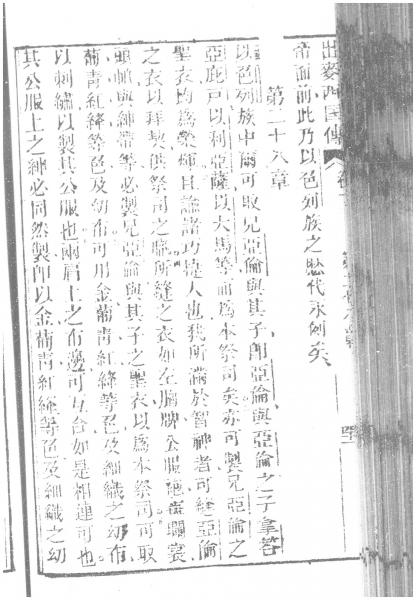 出麥西國傳
帝面前此乃以色列族之歷代永例矣
第二十八章
以色列族中爾可取兄亞倫與其子卽亞倫與亞倫之子拿答
亞庇戶以利亞薩以大馬等而爲本祭司矣亦可製兄亞倫之
聖衣均爲榮輝且論諸巧捷人也我所滿於智神者可縫亞倫
之衣以拜契供祭司之職所縫之衣如左胸牌公服
頭帕與紳帶等必製兄亞倫與其子之聖衣以爲本祭司可取
葡青紅絳等色及幼布可用金葡青紅絳等色及細織之幼布
以刺繡以製其公服也兩肩上之布邊可互合如是相連可也
其公服上之紳必同然製卽以金葡青紅絳等色及細織之幼